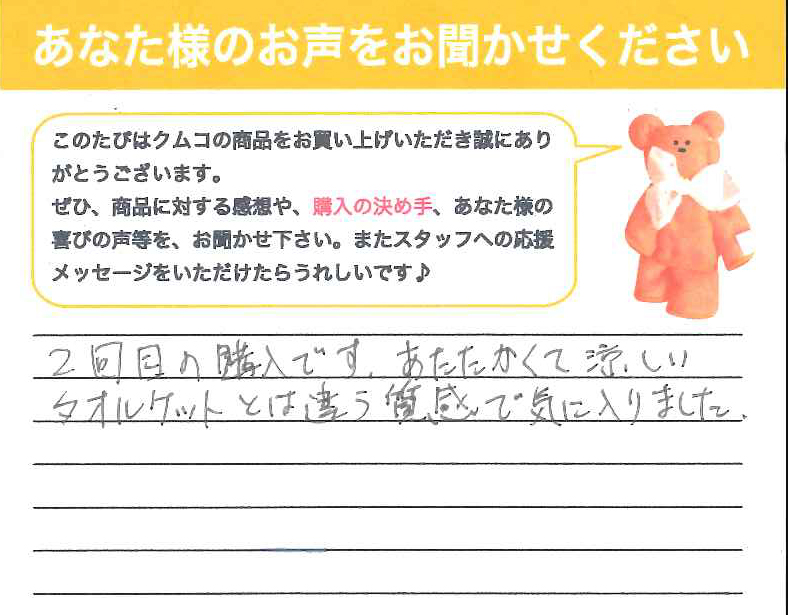 あなた様のお声をお聞かせください
このたびはクムコの商品をお買い上げいただき誠にあり
がとうございます。
ぜひ、商品に対する感想や、購入の決め手、あなた様の
喜びの声等を、お聞かせ下さい。またスタッフへの応援
メッセージをいただけたらうれしいです♪
2回目の購入です。あたたかくて涼しい
タオルケットとは違う質感で気に入りました。